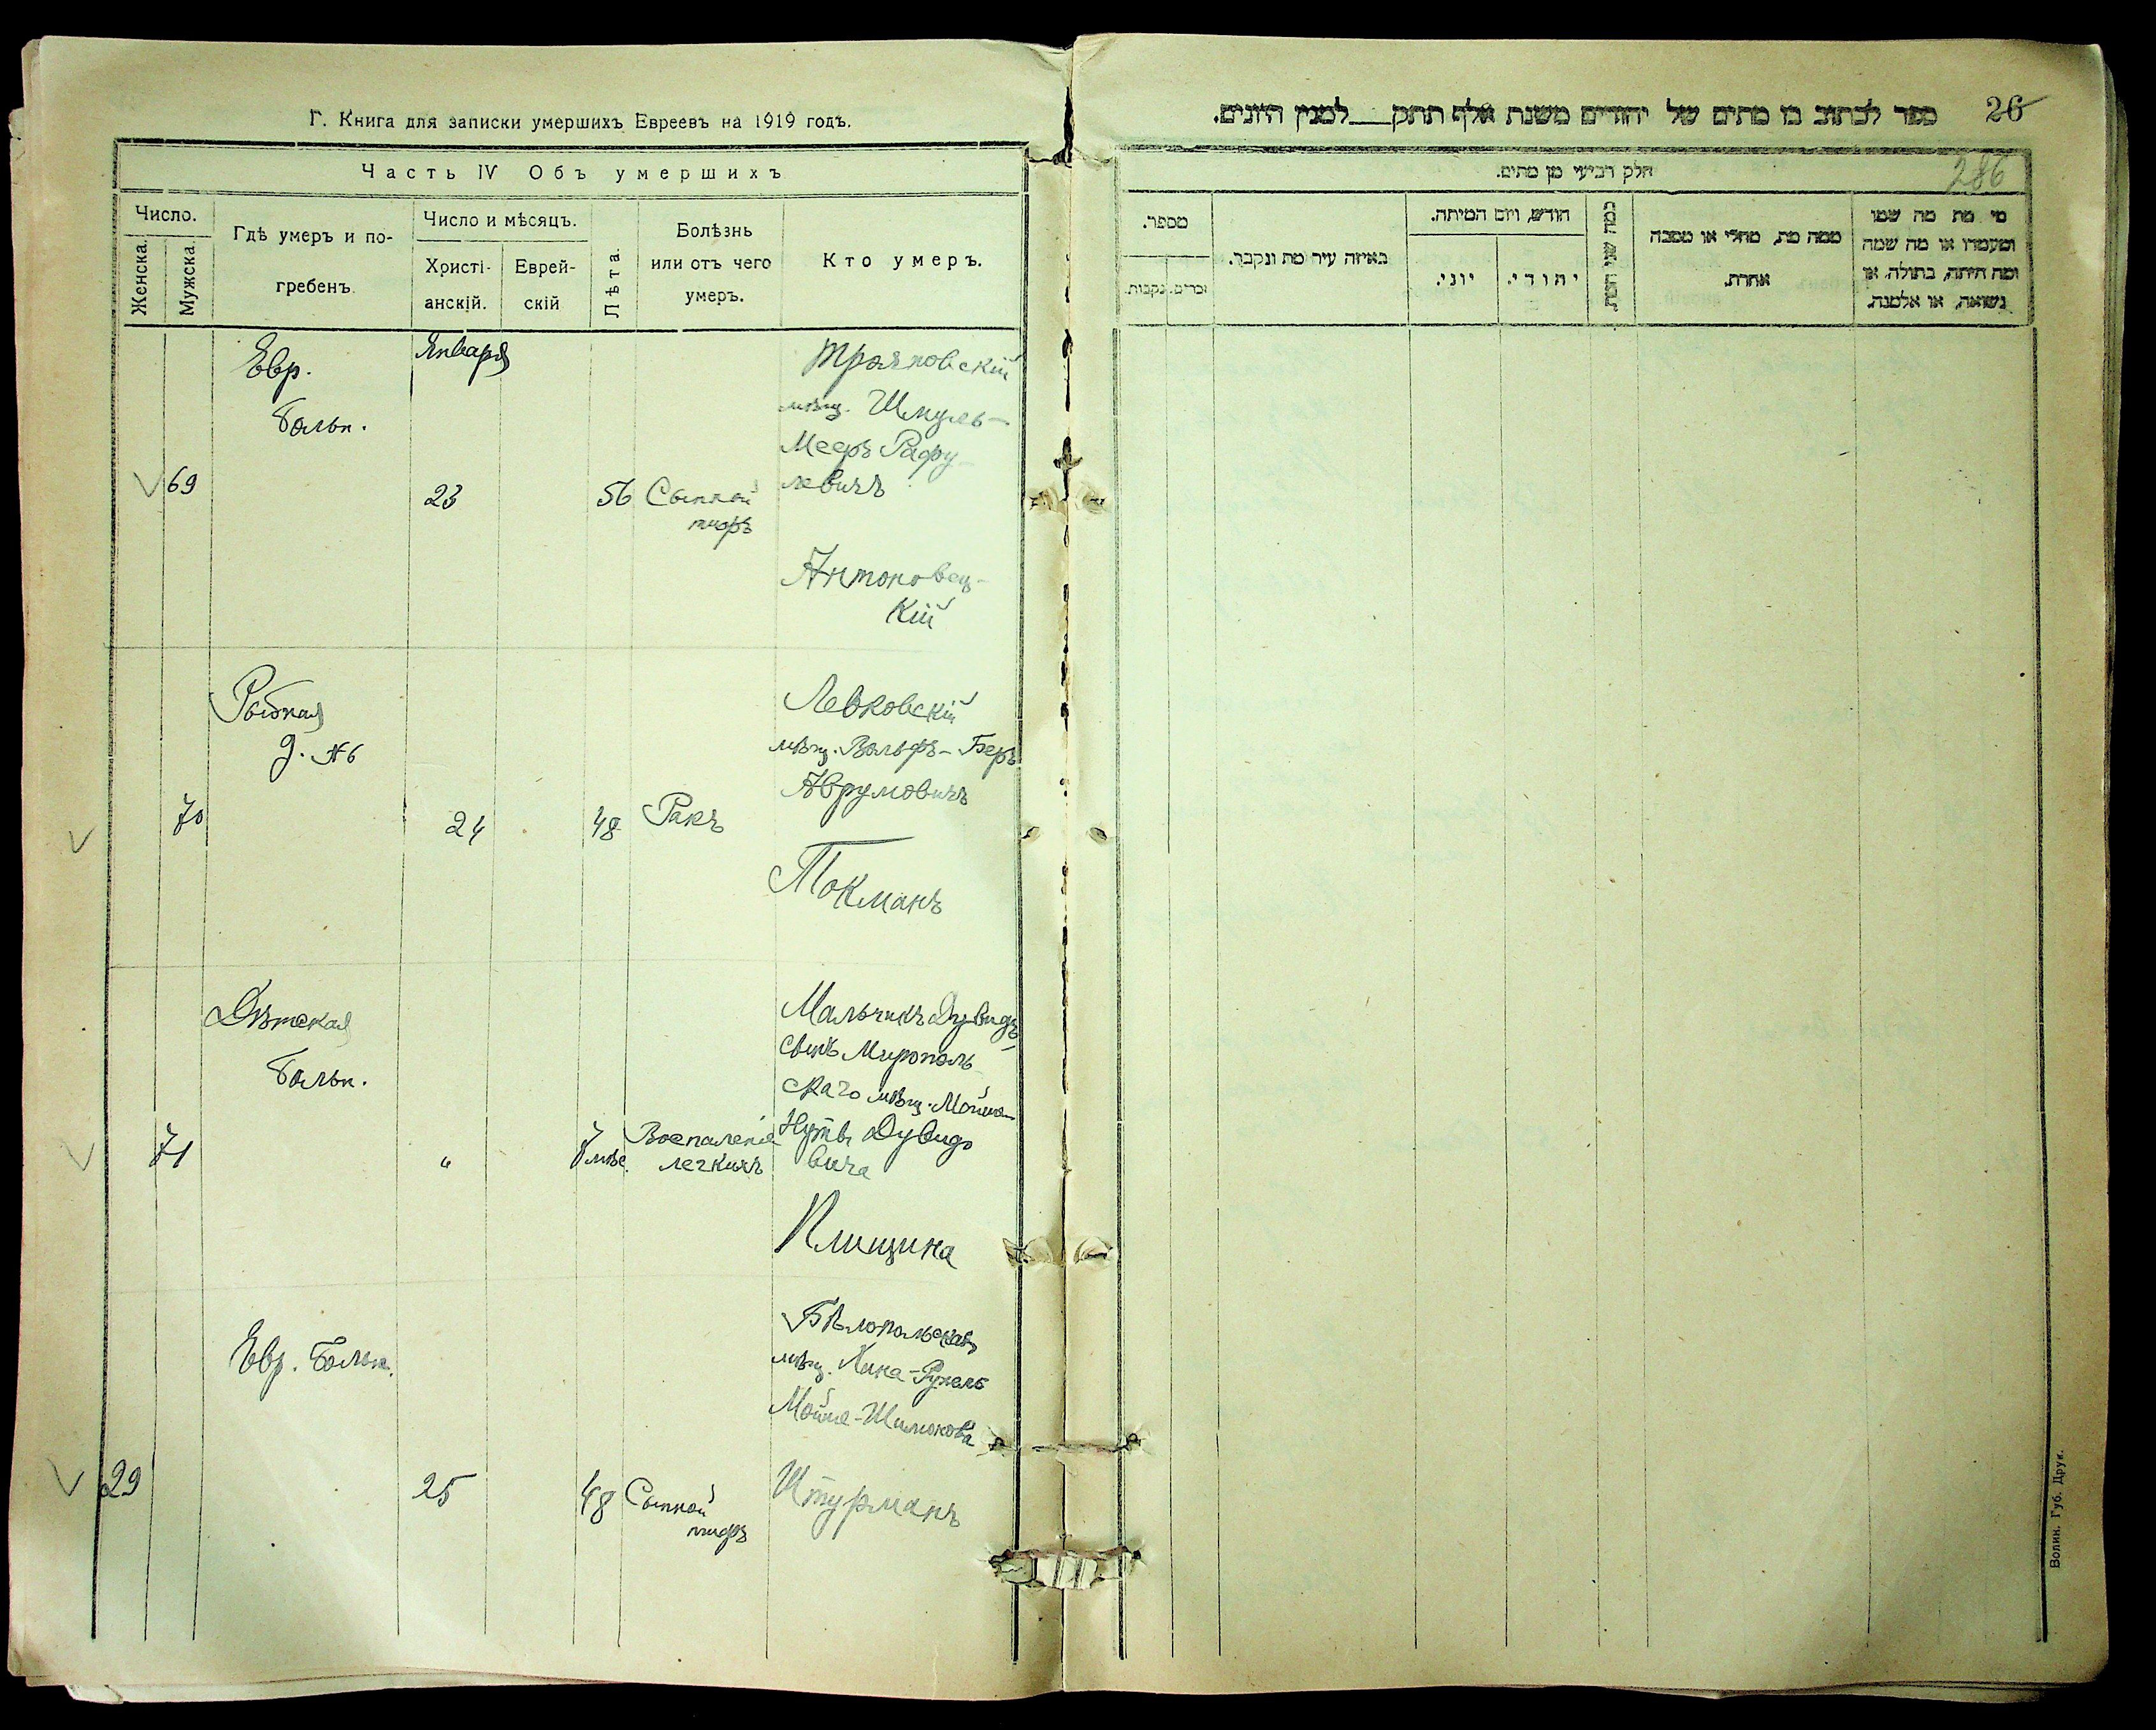 Г. Книга для записки умершихъ Евреевъ на 1919 годъ.
Часть IV Объ умершихъ
Число.
Женска.
Мужска.
Гдѣ умеръ и по-
гребенъ
Число и мѣсяцъ.
Христі-
анскій.
Еврей-
скій
Лѣта.
Болѣзнь
или отъ чего
умеръ.
Кто умеръ.
Евр.
Больн.
Января
69
23
56
Сыпной
тифъ
мѣщ. Шмуль-
Мееръ Рафу-
левичъ
Антоновец-
кій
Рыбная
д. №6
70
24
48
Ракъ
Левковскій
мѣщ. Вольфъ-Беръ
Аврумовичъ
Токманъ
Дѣтская
Больн.
71
"
7
мѣс.
Воспаленіе
легкихъ
Мальчикъ Дувидъ,
сынъ Мирополь
скаго мѣщ. Мойше-
Нутъ Дувидо
вича
Клищина
Евр. Больн.
29
25
48
Сыпной
тифъ
Бѣлопольская
мѣщ. Хина-Рухель
Мойше-Шимонова
Штурманъ
26
ספר לכתוב בו מתים של יהודים משנת אלף תתק___למנין היונים.
286
חלק רביעי מן מתים.
מספר.
זכרים.
נקבות.
באיזה עיר מת ונקבר.
חודש, ויום המיתה.
יוני.
יהודי.
כמה שני המת.
ממה מת, מחלי או מסבה
אחרת.
מי מת מה שמו
ומעמדו או מה שמה
ומה היתה, בתולה או
נשואה, או אלמנה.
Волин. Губ. Друк.